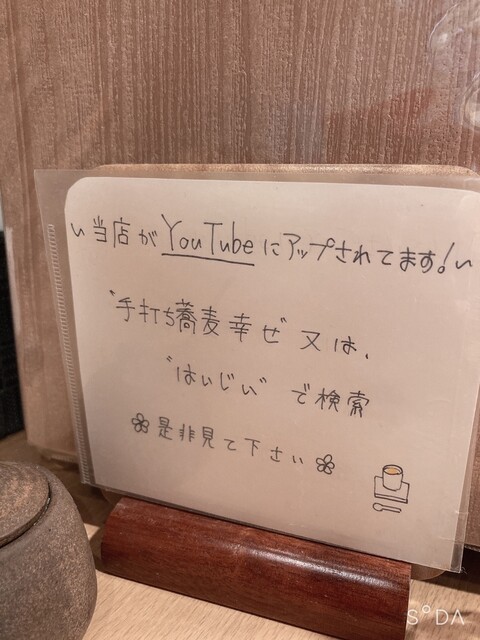 〃当店がYouTubeにアップされてます!〃
"手打ち蕎麦幸せ" 又は、
"はいじい" で検索
是非見て下さい
SODA